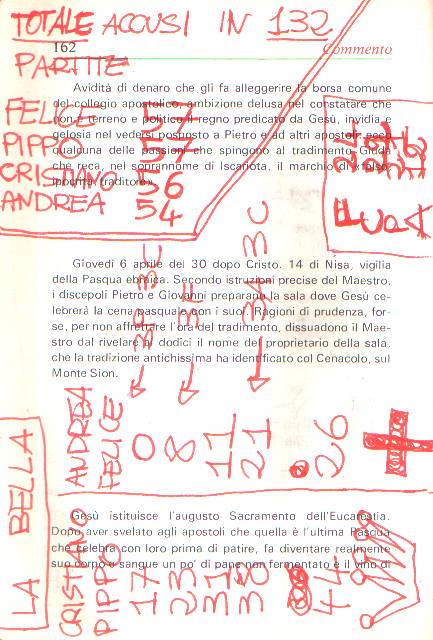 TOTALE ACCUSI IN 132
PARTITE
162
Commento
FELICE 
PIPPO 
CRISTIANO 56
ANDREA 54
Avidità di denaro che gli fa alleggerire la borsa comune
del collegio apostolico, ambizione delusa nel constatare che
non è terreno e politico il regno predicato da Gesù, invidia e
gelosia nel vedersi posposto a Pietro e ad altri apostoli: ecco
qualcuna delle passioni che spingono al tradimento Giuda
che reca, nel soprannome di Iscariota, il marchio di «falso,
ipocrita, traditore».
Giovedì 6 aprile del 30 dopo Cristo. 14 di Nisa, vigilia
della Pasqua ebraica. Secondo istruzioni precise del Maestro,
i discepoli Pietro e Giovanni preparano la sala dove Gesù ce-
lebrerà la cena pasquale con i suoi. Ragioni di prudenza, for-
se, per non affrettare l'ora del tradimento, dissuadono il Mae-
stro dal rivelare ai dodici il nome del proprietario della sala,
che la tradizione antichissima ha identificato col Cenacolo, sul
Monte Sion.
3C
LA BELLA
ANDREA
FELICE
0
8
11
21
26
Gesù istituisce l'augusto Sacramento dell'Eucarestia.
Dopo aver svelato agli apostoli che quella è l'ultima Pasqua
che celebra con loro prima di patire, fa diventare realmente
suo corpo e sangue un po' di pane non fermentato e il vino di
CRISTIANO
PIPPO
17
23
31
38
44